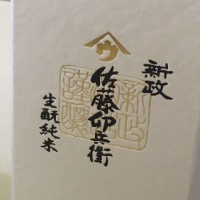 新政
ウ
佐藤卯兵衛
生酛純米